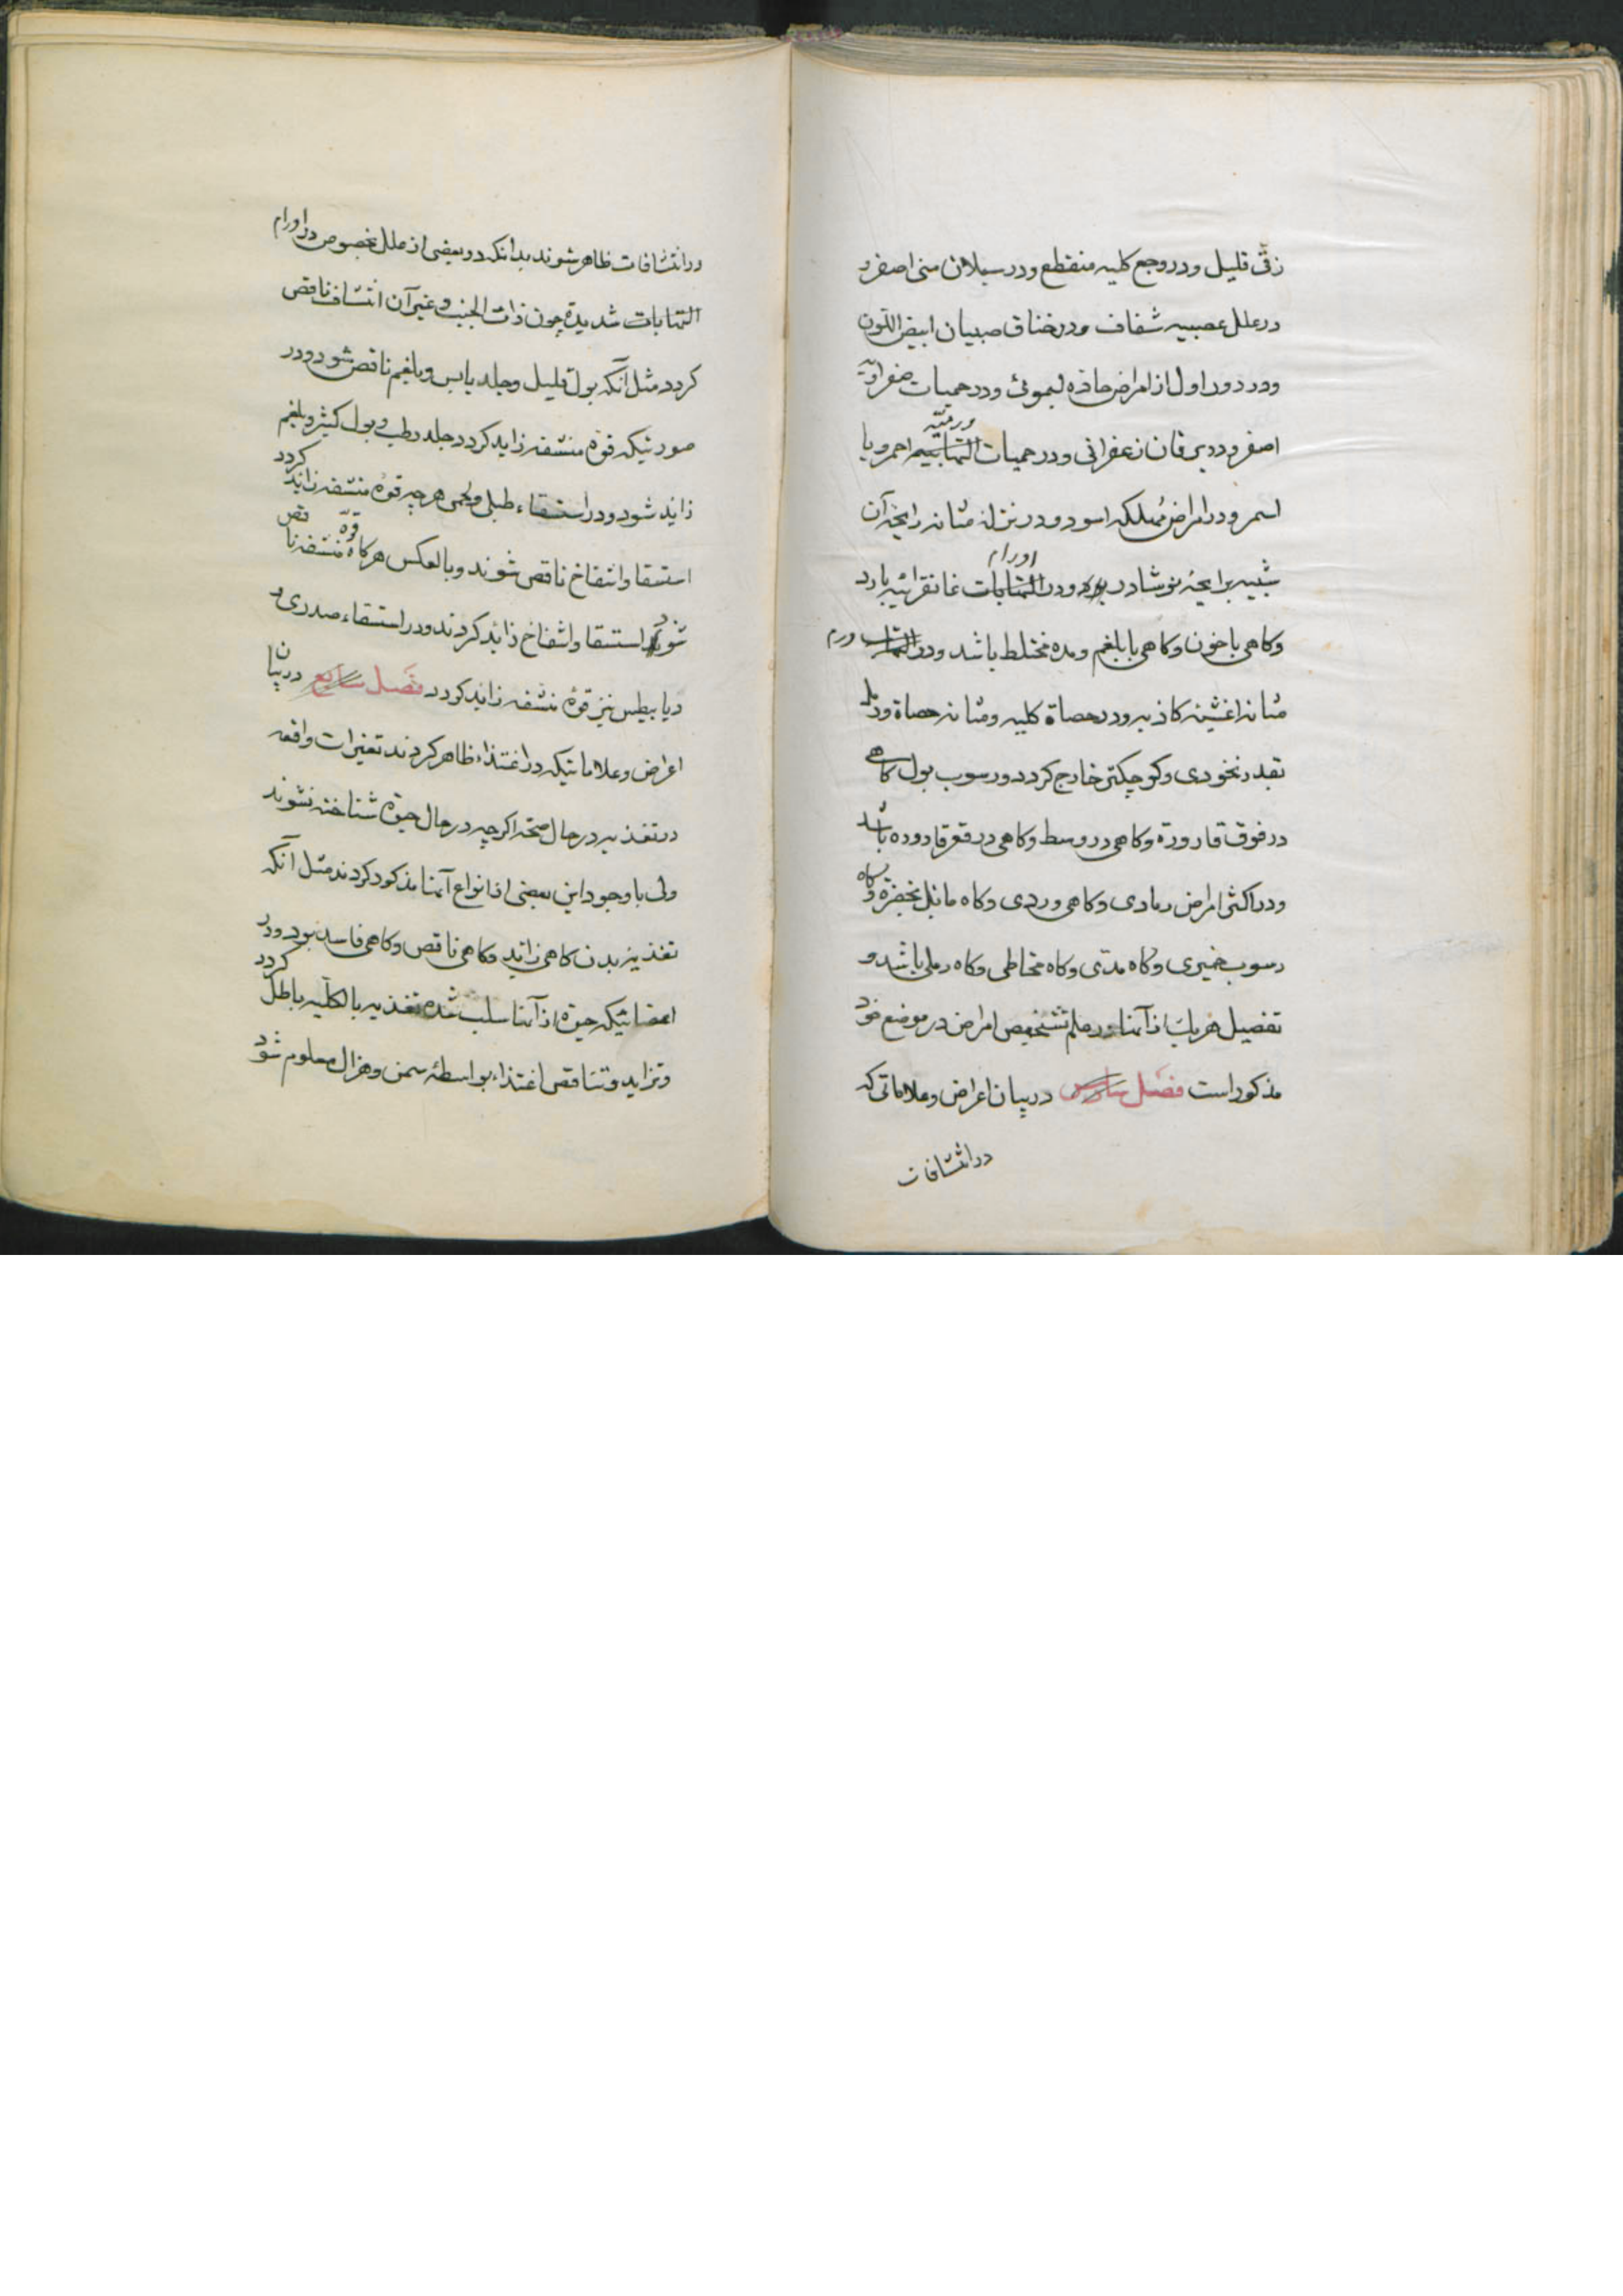 زقی قلیل و در وجع کلیه منقطع و در سیلان منی اصفر و
در علل عصبیه شفاف و در خناق صبیان ابیض اللون
و در دور اول از امراض حاده لیموئی و در حمیات صفراویه
اصفر و در یرقان زعفرانی و در حمیات التهابیه ورمیّه احمر و یا
اسمر و در امراض مهلکه اسود و در نزله مثانه رایحه آن
شبیه برایحه نوشادر بود و در التهابات اورام غانقرائیه بارد
و کاهی با خون و کاهی با بلغم و مده مختلط باشد و در التهاب ورم
مثانه اغشیه کاذبه و در حصاة کلیه و مثانه حصاة و رمل
بقدر نخودی و کوچکتر خارج کردد و رسوب بول کاهی
در فوق قاروره و کاهی در وسط و کاهی در قعر قاروره باشد
و در اکثر امراض رمادی و کاهی وردی و کاه مایل بخضرة و کاه
رسوب خمیری و کاه مدّی و کاه مخاطی و کاه رملی باشد و
تفصیل هر یک از آنها در علم تشخیص امراض در موضع خود
مذکور است فصل سادس در بیان اعراض و علاماتی که
در انتشافات
در انتشافات ظاهر شوند بدانکه در بعضی از علل بخصوص در اورام
التهابات شدیده چون ذات الجنب و غیر آن انتشاف ناقص
کردد مثل آنکه بول قلیل و جلد یابس و بلغم ناقص شود و در
صورتیکه قوّه منتشفه زاید کردد جلد رطب و بول کثیر و بلغم
زاید شود و در استسقاء طبلی و لحمی هر چه قوّه منتشفه زاید کردد
استسقا و انتفاخ ناقص شوند و بالعکس هر کاه قوّه منتشفه ناقص
شود استسقا و انتفاخ زاید کردند و در استسقاء صدری و
دیابیطس نیز قوّه منتشفه زاید کردد فصل سابع در بیان
اعراض و علاماتیکه در اغتذاء ظاهر کردند تغیرات واقعه
در تغذیه در حال صحة اکرچه در حال حیوة شناخته نشوند
ولی با وجود این بعضی از انواع آنها مذکور کردند مثل آنکه
تغذیه بدن کاهی زاید و کاهی ناقص و کاهی فاسد بود و در
اعضائیکه حیوة از آنها سلب شده تغذیه بالکلیه باطل کردد
و تزاید و تناقص اغتذاء بواسطهٔ سمن و هزال معلوم شود